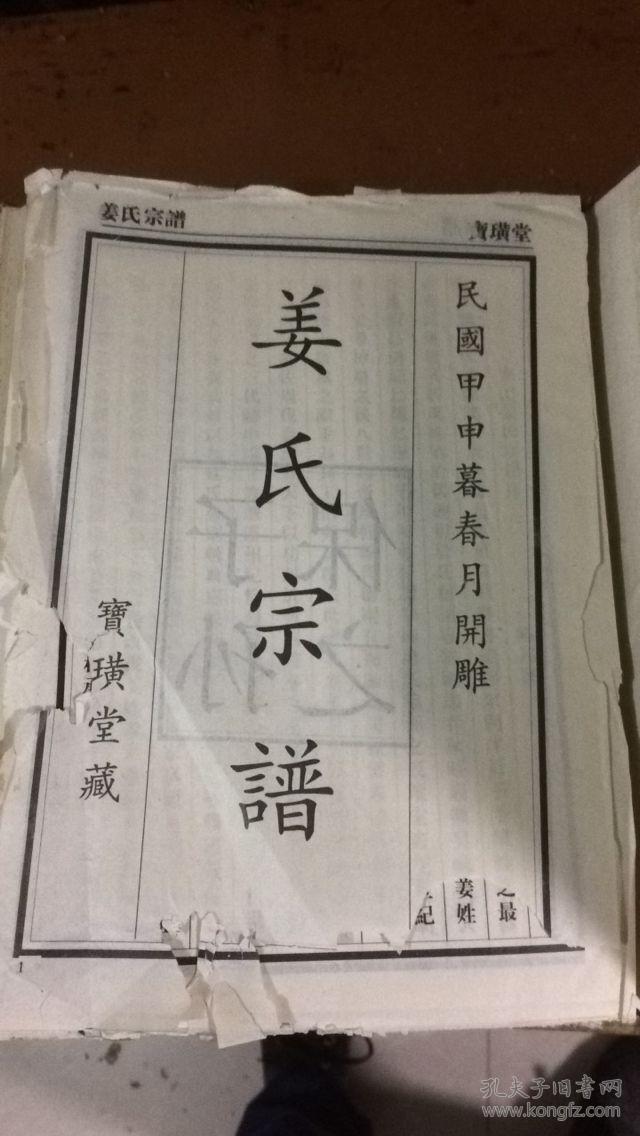 姜氏宗譜
寶璜堂
民國甲申暮春月開雕
姜氏宗譜
寶璜堂藏
最
姜姓
記
1
孔夫子旧书网
www.kongfz.com